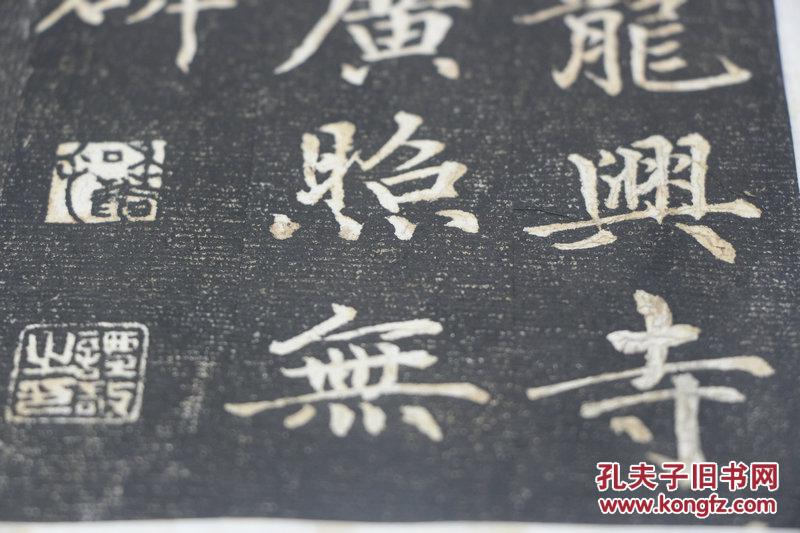 龍興寺
廣照無
碑
孔夫子旧书网
www.kongfz.com